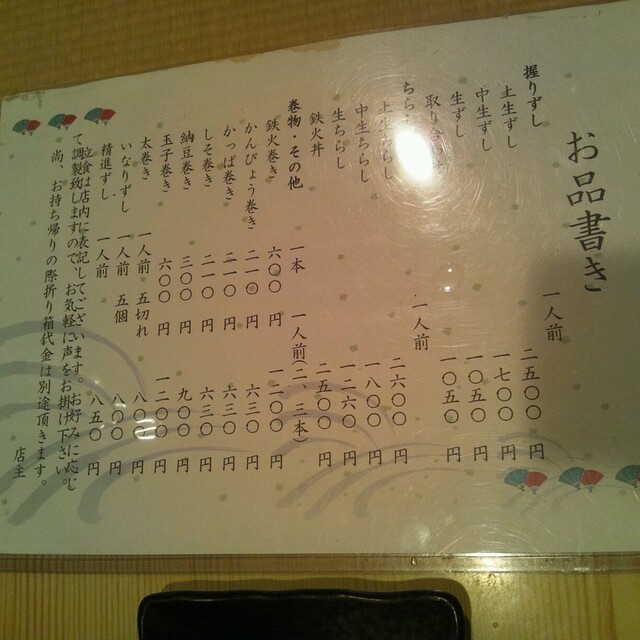 お品書き
握りずし 一人前
上生ずし 二五〇〇円
中生ずし 一七〇〇円
生ずし 一〇五〇円
取り 一〇五〇円
ちらし 一人前
上生ちらし 二六〇〇円
中生ちらし 一八〇〇円
生ちらし 一二六〇円
鉄火丼 二五〇〇円
巻物・その他 一本 一人前(二、三本)
鉄火巻き 六〇〇円 一二〇〇円
かんぴょう巻き 二一〇円 六三〇円
かっぱ巻き 二一〇円 六三〇円
しそ巻き 二一〇円 六三〇円
納豆巻き 三〇〇円 九〇〇円
玉子巻き 六〇〇円 一二〇〇円
太巻き 一人前 五切れ 八〇〇円
いなりずし 一人前 五個 八〇〇円
精進ずし 一人前 八五〇円
立食は店内に表記してございます。お好みに応じ
て調製致しますので、お気軽に声をお掛け下さい。
尚、お持ち帰りの際折り箱代金は別途頂きます。
店主